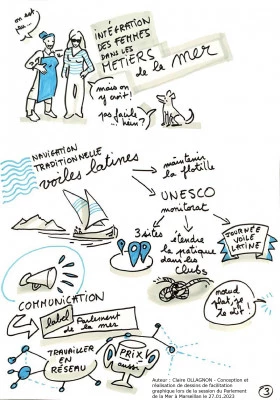 on est
peu...
INTÉGRATION
DES FEMMES
DANS LES
MÉTIERS
de la mer
mais on
y croit!
pas facile
hein?
NAVIGATION
TRADITIONNELLE
voiles latines
maintenir
la flotille
UNESCO
monitorat
3 sites
étendre
la pratique
dans les
clubs
JOURNÉE
VOILE
LATINE
nœud
plat, je
te dit!
COMMUNICATION
label Parlement
de la mer
TRAVAILLER
EN
RÉSEAU
PRIX
aussi
Auteur : Claire OLLAGNON - Conception et
réalisation de dessins de facilitation
graphique lors de la session du Parlement
de la Mer à Marseillan le 27.01.2023
3